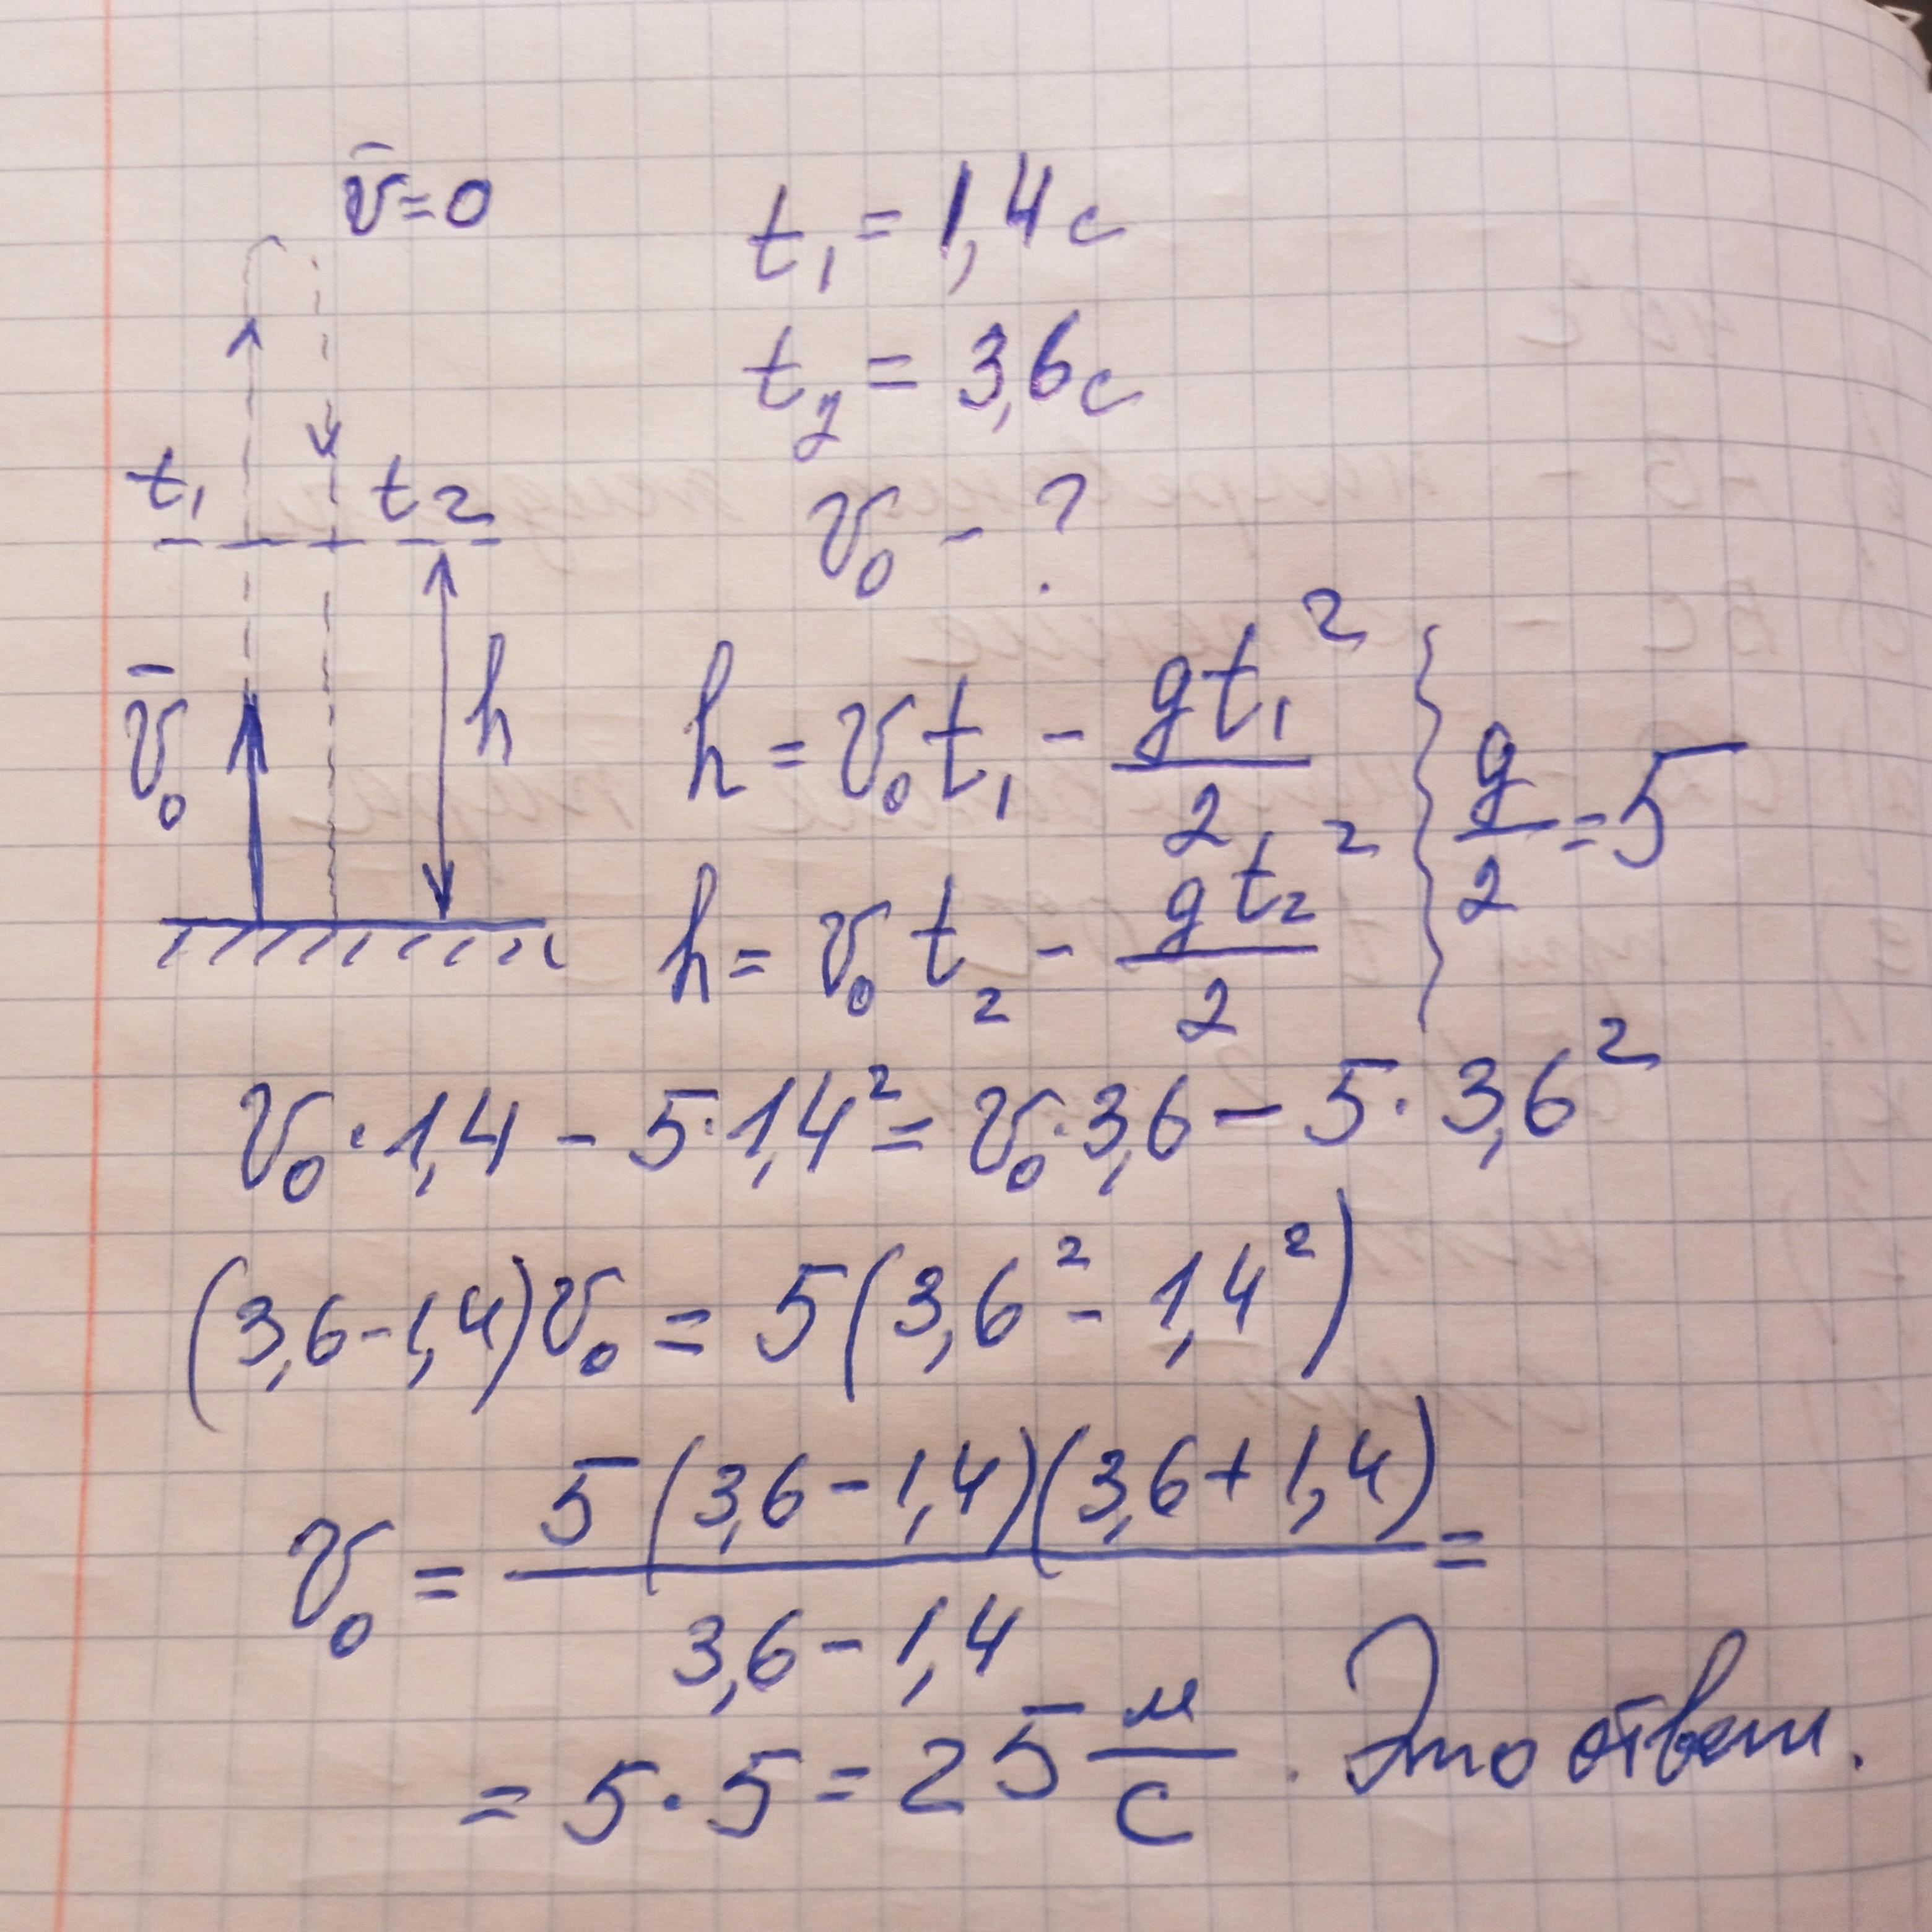 v̄=0
t₁ = 1,4 с
t₂ = 3,6 с
v₀ - ?
t₁ t₂
v̄₀
h
h = v₀t₁ - gt₁²/2
g/2 = 5
h = v₀t₂ - gt₂²/2
v₀·1,4 - 5·1,4² = v₀·3,6 - 5·3,6²
(3,6-1,4)v₀ = 5(3,6² - 1,4²)
v₀ = 5(3,6-1,4)(3,6+1,4)/3,6-1,4 =
= 5·5 = 25 м/с. Это ответ.